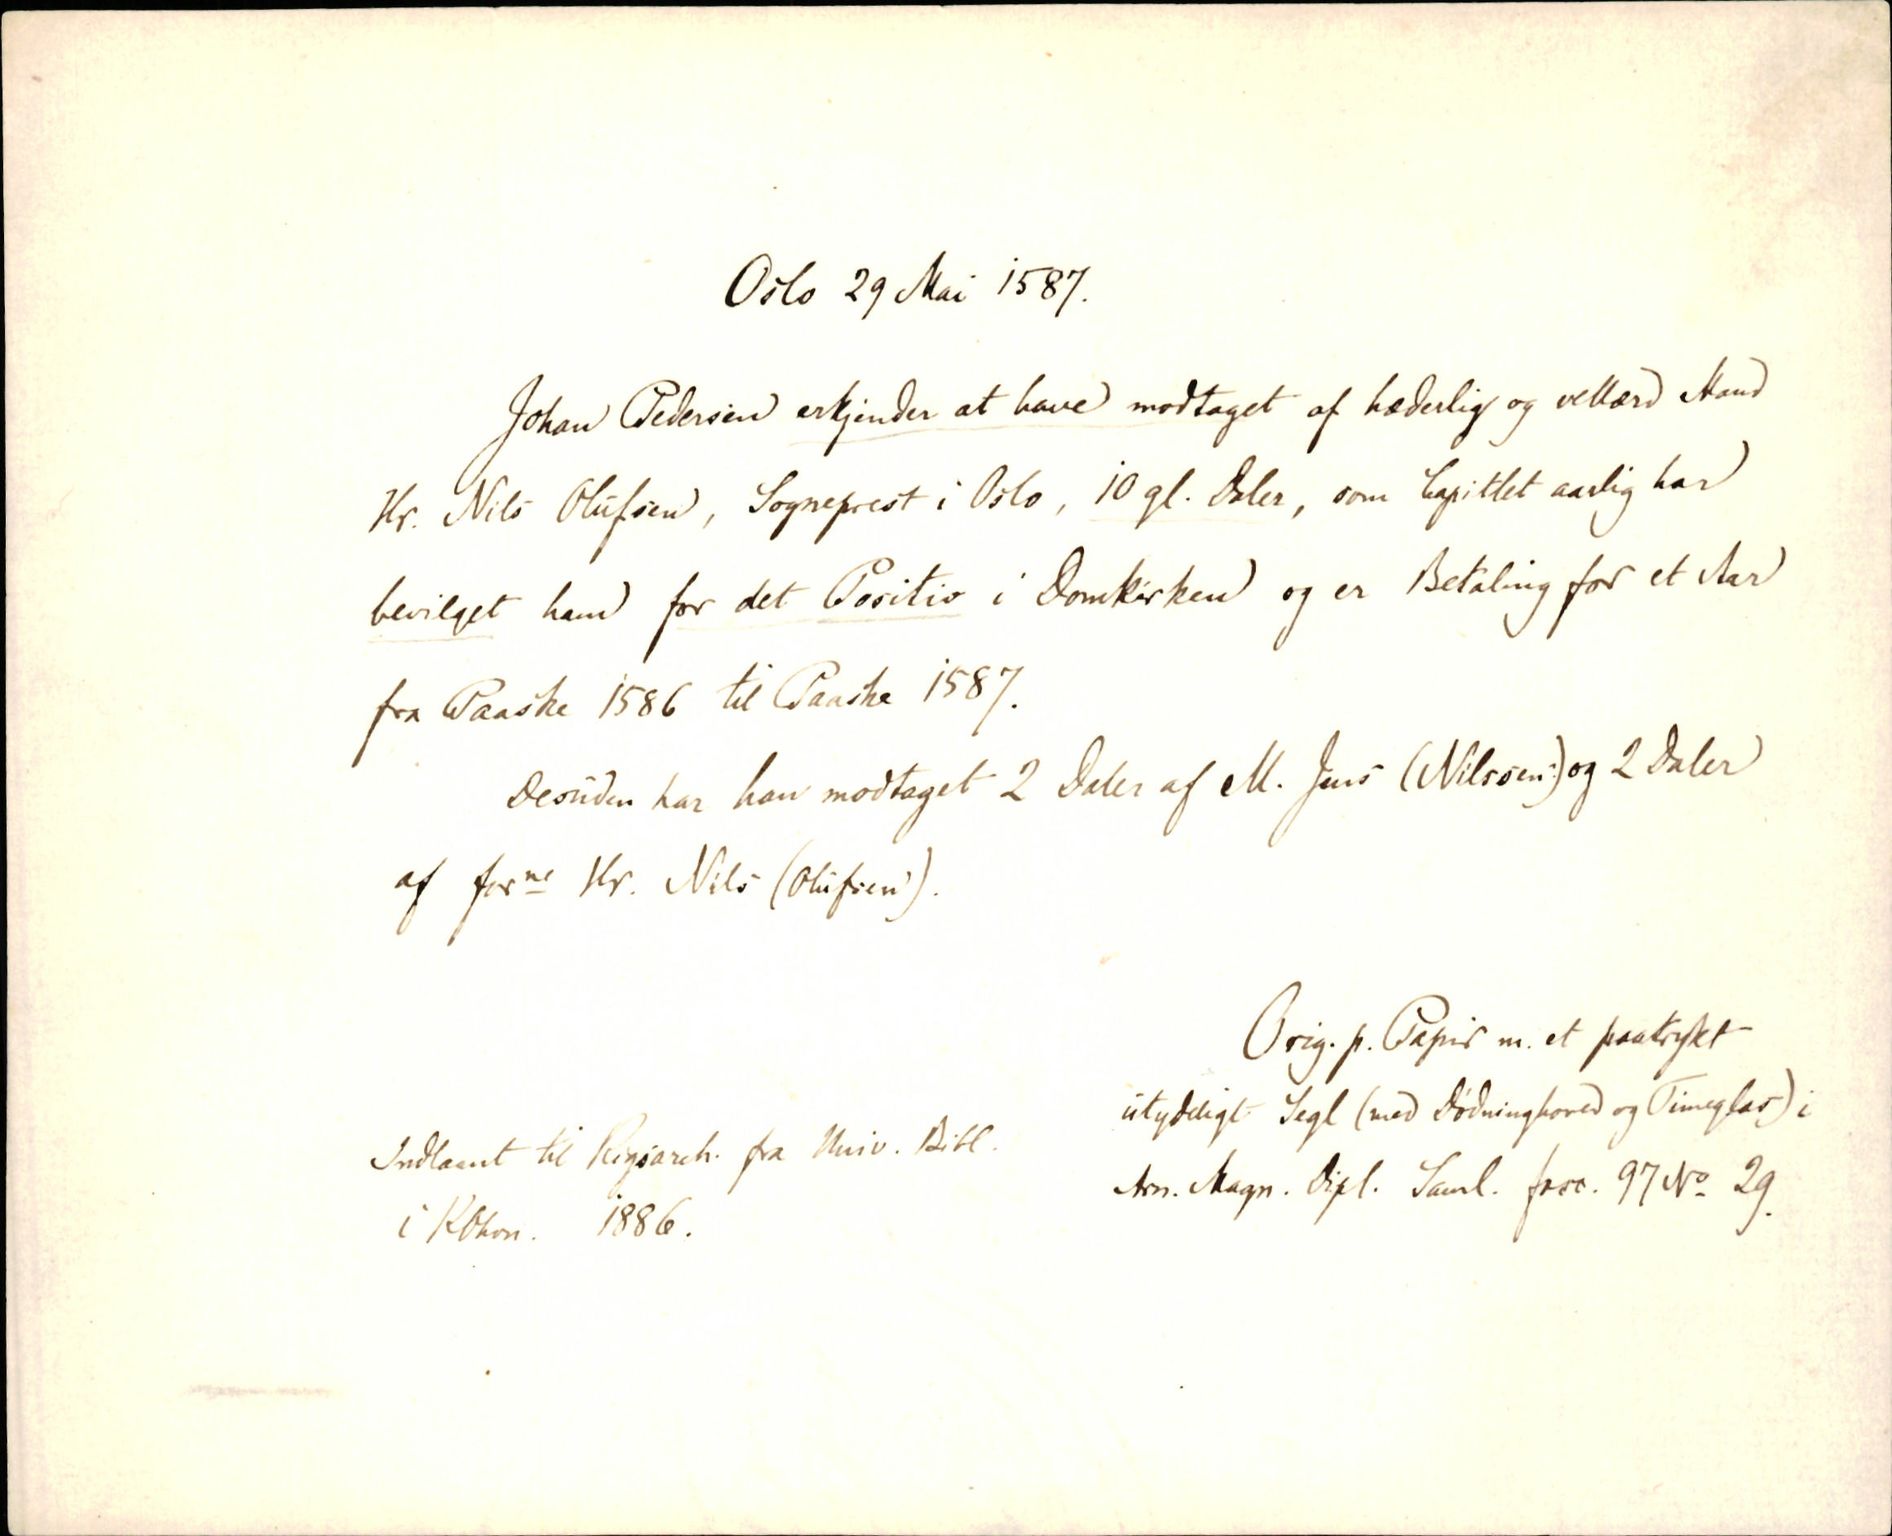 Oslo 29 Mai 1587.
Johan Pedersen erkjender at have modtaget af hæderlig og vellærd Mand
Hr. Nils Olufsen, Sogneprest i Oslo, 10 gl. Daler, som Capittlet aarlig har
bevilget ham for det Positiv i Domkirken og er Betaling for et Aar
fra Paaske 1586 til Paaske 1587.
Desuden har han modtaget 2 Daler af M. Jens (Nilssen) og 2 Daler
af forne Hr. Nils (Olufsen).
Orig. p. Papir m. et paatrykt
utydeligt Segl (med Dødninghoved og Timeglas) i
Arn. Magn. Dipl. Saml. fasc. 97 No 29.
Indlaant til Rigsarch. fra Univ. Bibl.
i Kbhvn. 1886.